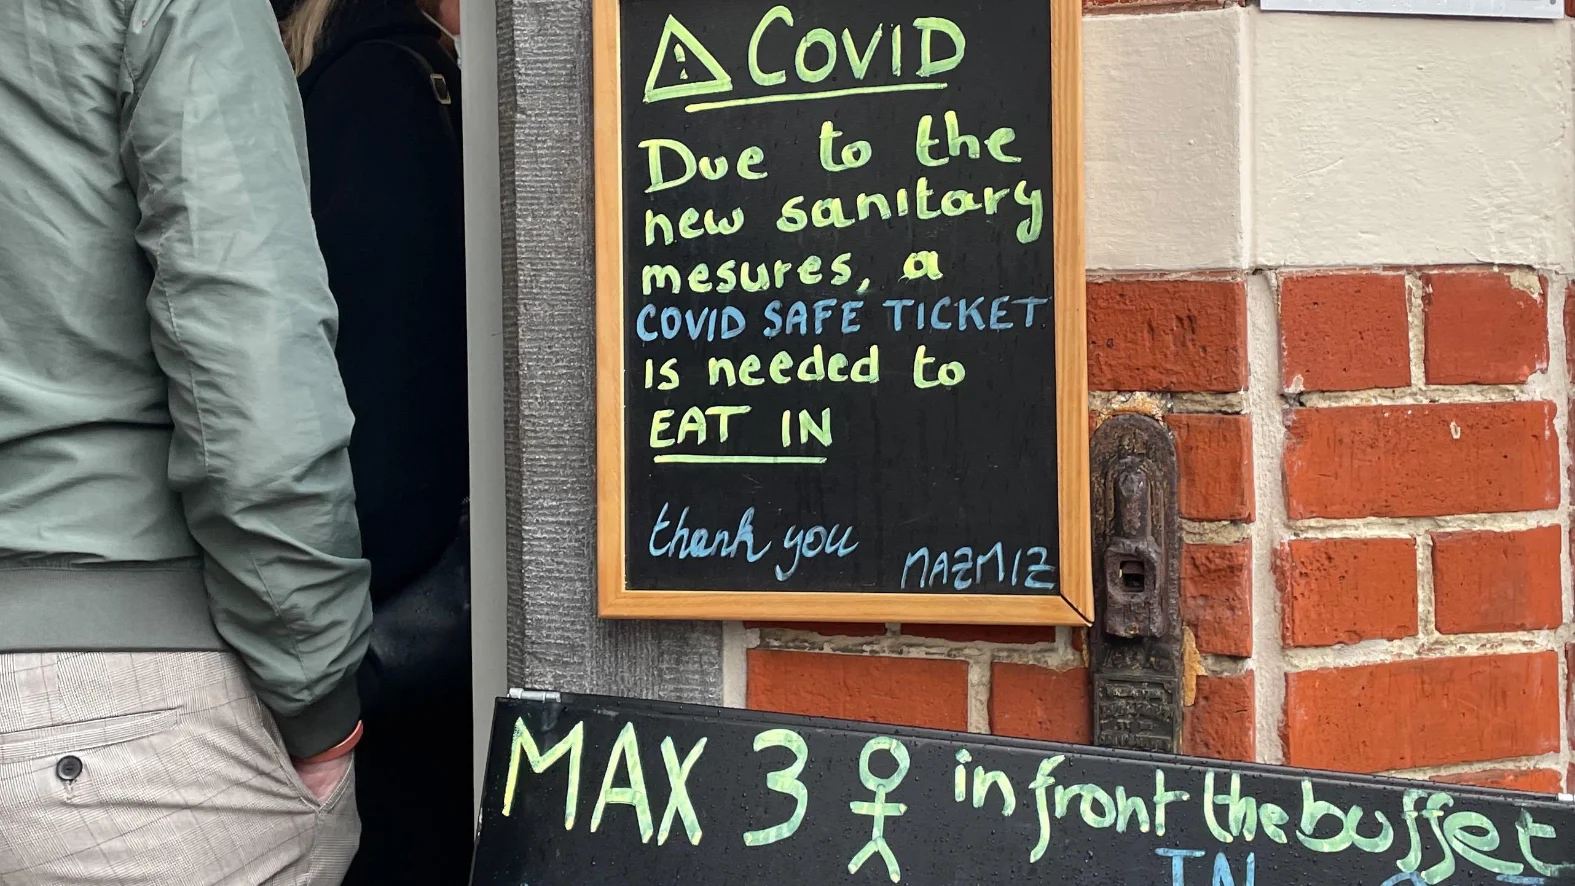 COVID
Due to the
new sanitary
mesures, a
COVID SAFE TICKET
is needed to
EAT IN
thank you
MAZMIZ
MAX 3 in front the buffet
IN